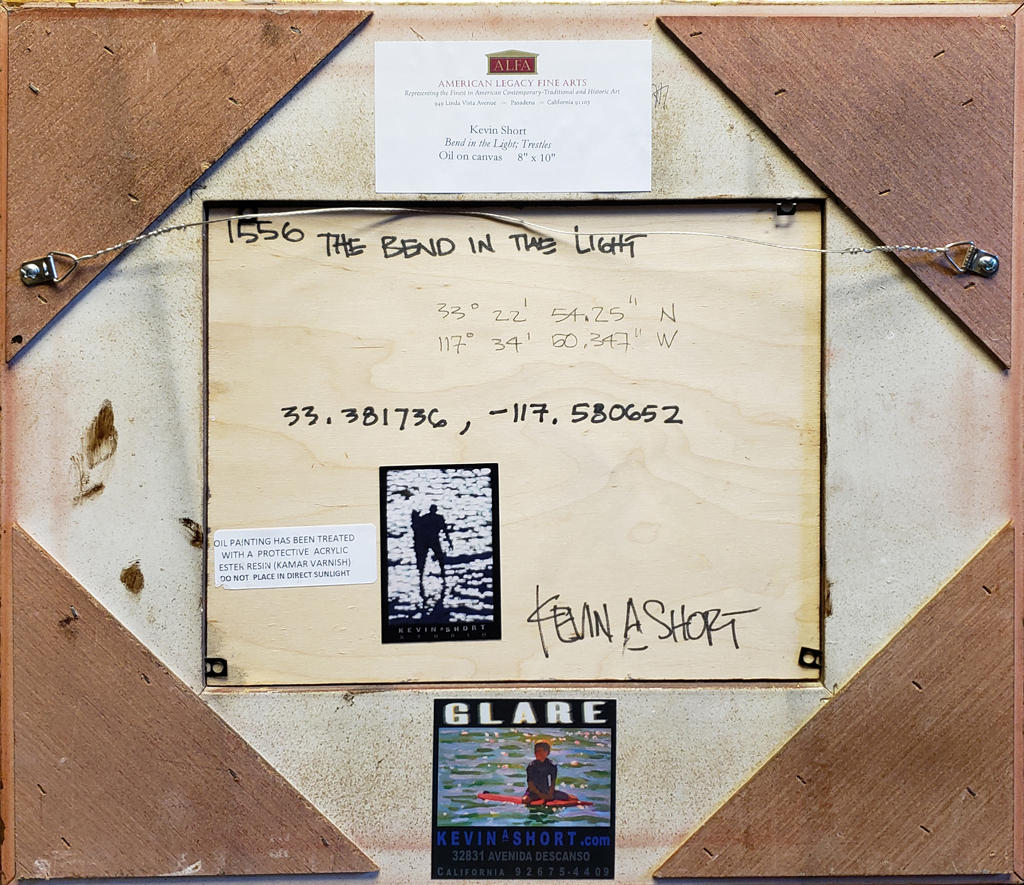 ALFA
AMERICAN LEGACY FINE ARTS
Representing the Finest in American Contemporary-Traditional and Historic Art
949 Linda Vista Avenue — Pasadena — California 91103
Kevin Short
Bend in the Light; Trestles
Oil on canvas 8" x 10"
1556 THE BEND IN THE LIGHT
33° 22' 54.25" N
117° 34' 50.347" W
33.381736, -117.580652
OIL PAINTING HAS BEEN TREATED
WITH A PROTECTIVE ACRYLIC
ESTER RESIN (KAMAR VARNISH)
DO NOT PLACE IN DIRECT SUNLIGHT
KEVIN A SHORT
STUDIO
KEVIN A SHORT
GLARE
KEVIN A SHORT.com
32831 AVENIDA DESCANSO
CALIFORNIA 92675-4409